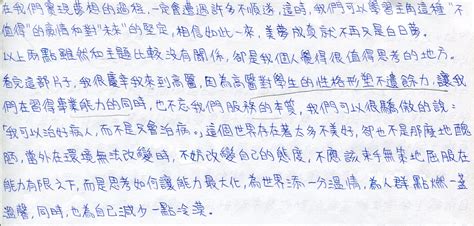 在我們實現夢想的過程,一定會遭遇許多不順遂,這時,我們可以學習主角這種"不
值得"的勇情和對"未來"的堅定,相信如此一來,美夢成真就不再是白日夢。
以上兩點雖然和主題比較沒有關係,卻是我個人覺得很值得思考的地方。
看完這部片子,我很慶幸我來到高醫,因為高醫對學生的性格形塑不遺餘力,讓我
們在習得專業能力的同時,也不忘我們服務的本質,我們可以很驕傲的說:
「我可以治好病人,而不是只會治病。」這個世界存在著太多不美好,卻也不是那麼地醜
陋,當外在環境無法改變時,不妨改變自己的態度,不應該束手無策地屈服在
能力有限之下,而是思考如何讓能力最大化,為世界添一分溫情,為人群點燃一盞
溫馨,同時,也為自己減少一點冷漠。